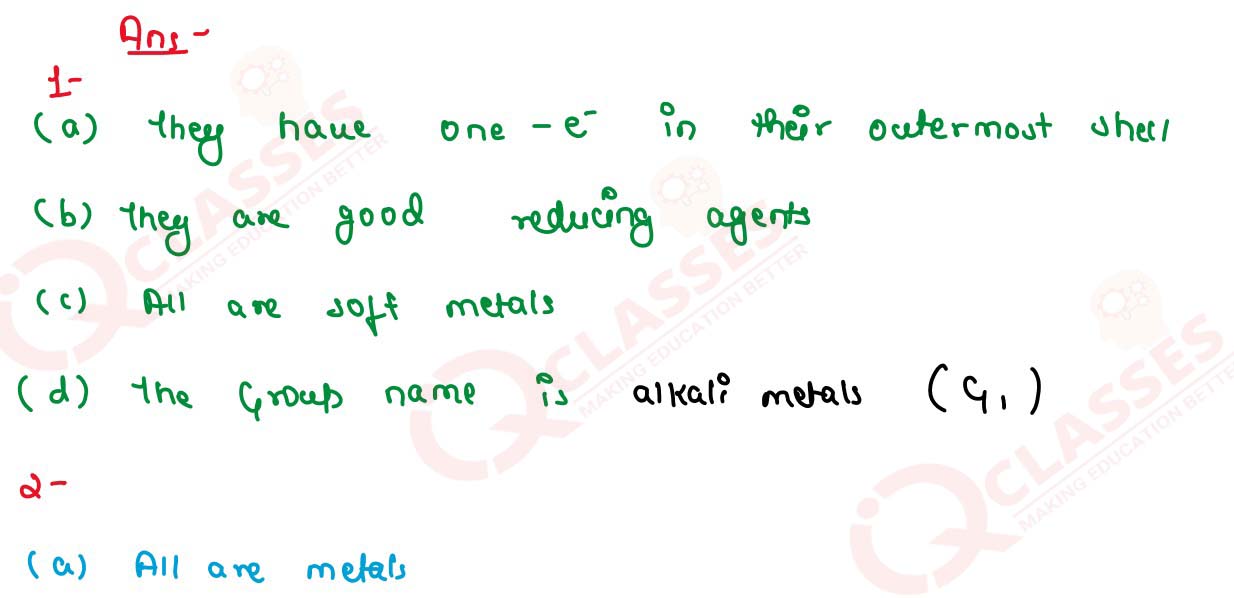 Ans -
1-
(a) they have one - e⁻ in their outermost shell
(b) they are good reducing agents
(c) All are soft metals
(d) the Group name is alkali metals (G₁)
2-
(a) All are metals
iQ CLASSES
MAKING EDUCATION BETTER
iQ CLASSES
MAKING EDUCATION BETTER
iQ CLASSES
MAKING EDUCATION BETTER